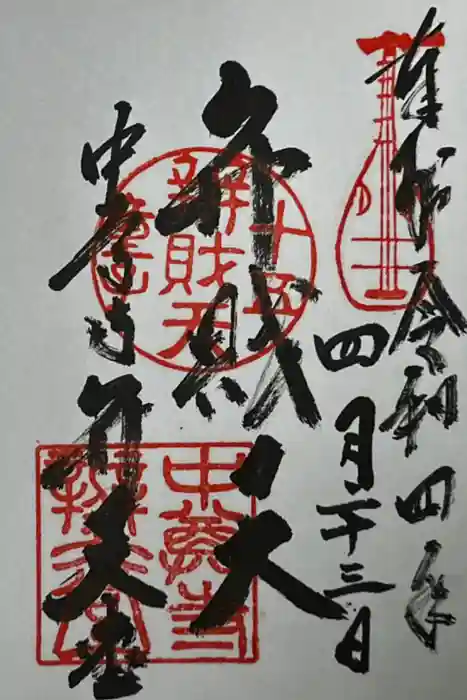 奉拝 令和四年
四月二十三日
弁財天
中尊寺弁天堂
十五
辨財天
童子
中尊寺
辨天堂